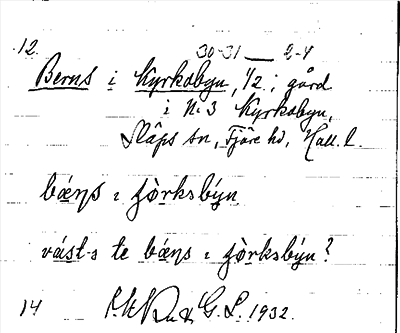 12.
30-31 — 2-4
Berns i Kyrkobyn, 1/2; gård
i N:3 Kyrkobyn,
Släps sn, Fjäre hd, Hall. l.
bæ̀ns ı fòrksbýn
vást-s te bæ̀ns ı fòrksbýn?
14 G. L. 1932.